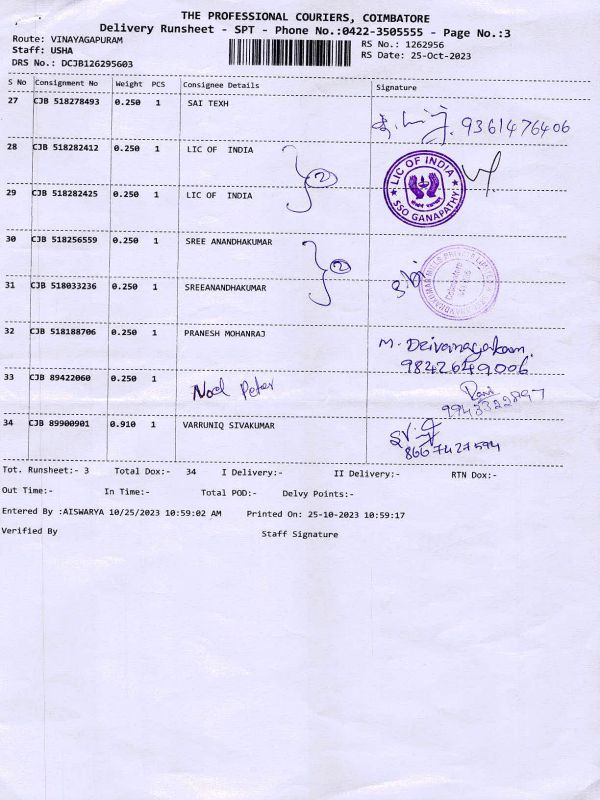 THE PROFESSIONAL COURIERS, COIMBATORE
Delivery Runsheet - SPT - Phone No.:0422-3505555 - Page No.:3
Route: VINAYAGAPURAM
Staff: USHA
DRS No.: DCJB126295603
RS No.: 1262956
RS Date: 25-Oct-2023
S No Consignment No Weight PCS Consignee Details Signature
27 CJB 518278493 0.250 1 SAI TEXH
9361476406
28 CJB 518282412 0.250 1 LIC OF INDIA
2
LIC OF INDIA
SSO GANAPATHY
29 CJB 518282425 0.250 1 LIC OF INDIA
30 CJB 518256559 0.250 1 SREE ANANDHAKUMAR
2
31 CJB 518033236 0.250 1 SREEANANDHAKUMAR
32 CJB 518188706 0.250 1 PRANESH MOHANRAJ
9842649006
33 CJB 89422060 0.250 1 Noel Peter
9943322897
34 CJB 89900901 0.910 1 VARRUNIQ SIVAKUMAR
8667427594
Tot. Runsheet:- 3 Total Dox:- 34 I Delivery:- II Delivery:- RTN Dox:-
Out Time:- In Time:- Total POD:- Delvy Points:-
Entered By :AISWARYA 10/25/2023 10:59:02 AM Printed On: 25-10-2023 10:59:17
Verified By Staff Signature